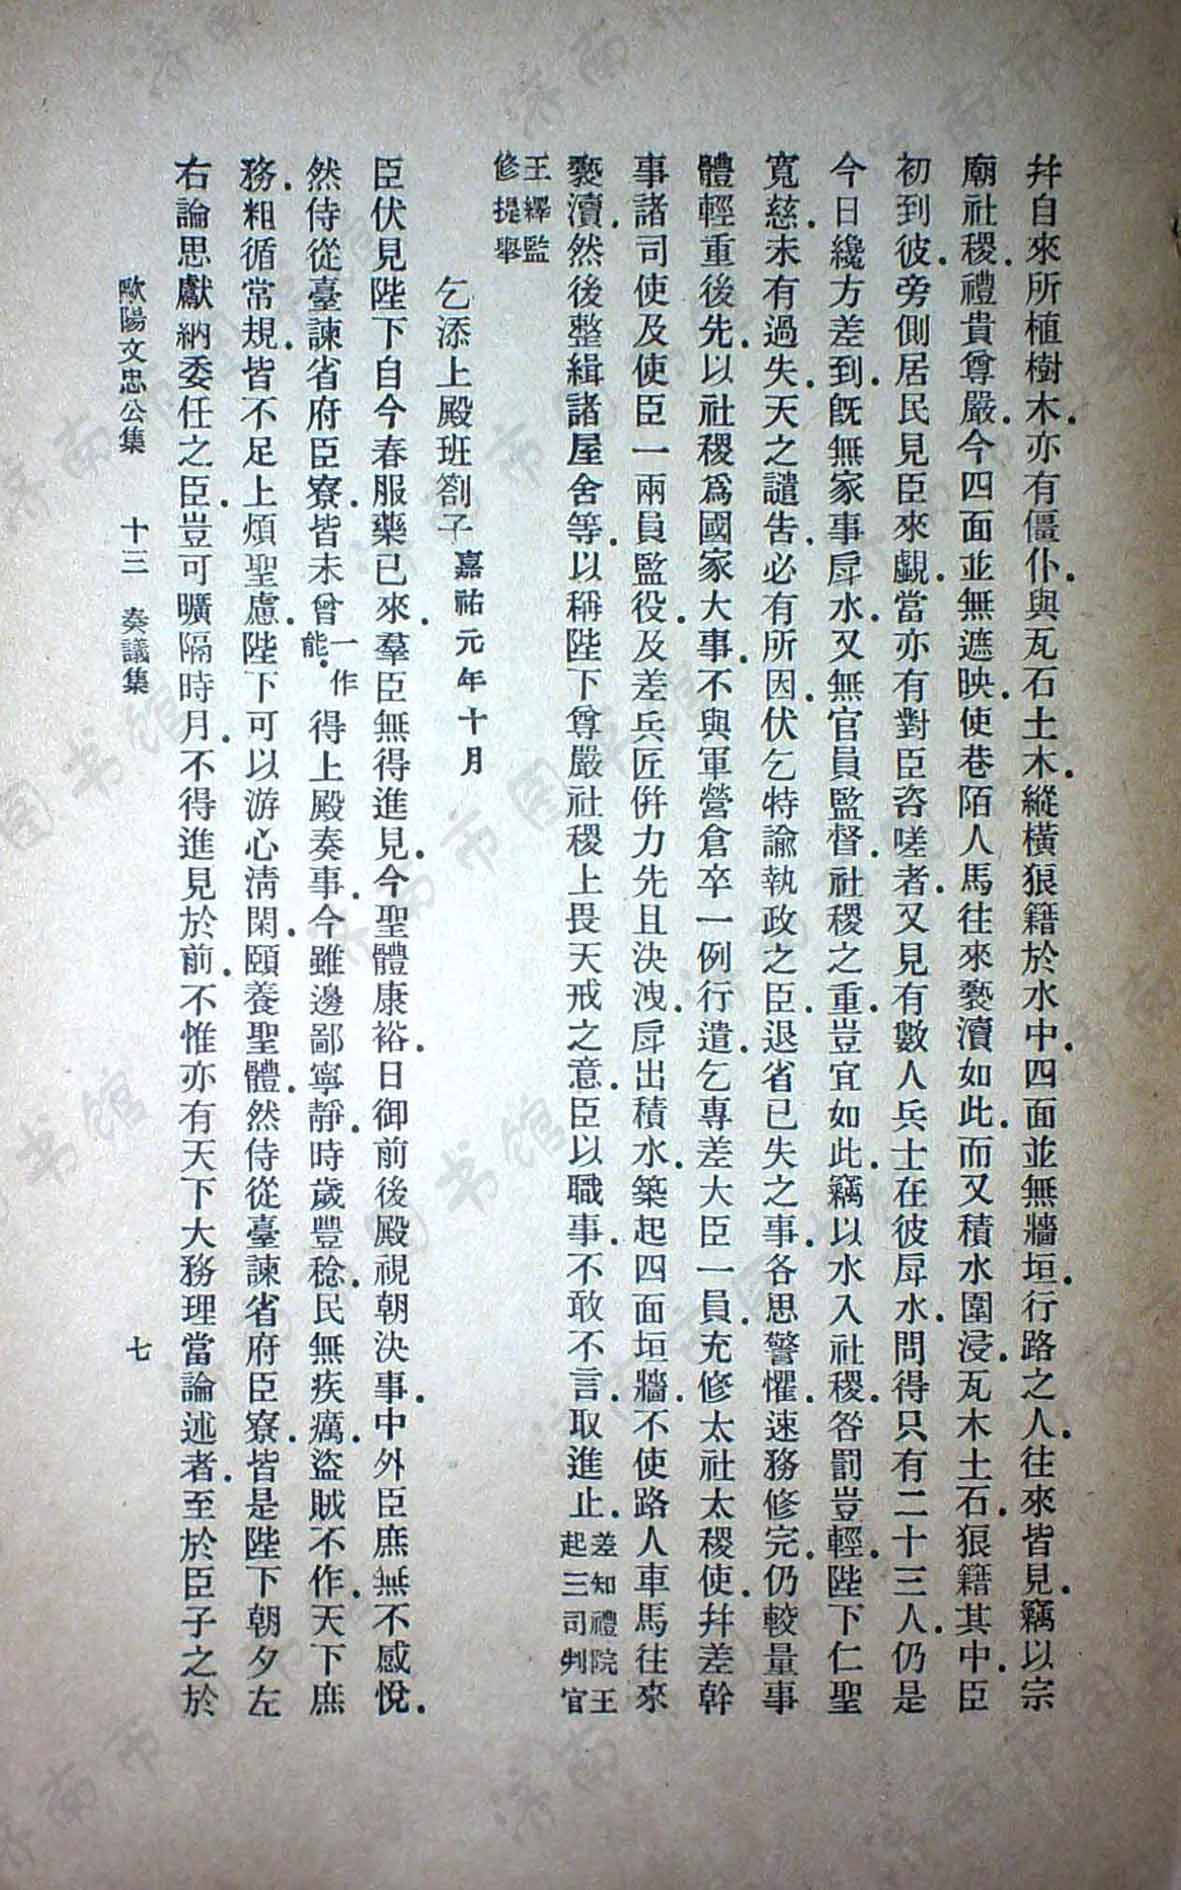 幷自來所植樹木.亦有僵仆.與瓦石土木.縱橫狼籍於水中.四面並無牆垣.行路之人.往來皆見.竊以宗
廟社稷.禮貴尊嚴.今四面並無遮映.使巷陌人馬往來褻瀆如此.而又積水圍浸.瓦木土石.狼籍其中.臣
初到彼.旁側居民見臣來覷.當亦有對臣咨嗟者.又見有數人兵士在彼戽水.問得只有二十三人.仍是
今日纔方差到.旣無家事戽水.又無官員監督.社稷之重.豈宜如此.竊以水入社稷.咎罰豈輕.陛下仁聖
寬慈.未有過失.天之譴告.必有所因.伏乞特諭執政之臣.退省已失之事.各思警懼.速務修完.仍較量事
體輕重後先.以社稷爲國家大事.不與軍營倉卒一例行遣.乞專差大臣一員.充修太社太稷使.幷差幹
事諸司使及使臣一兩員監役.及差兵匠併力先且決洩.戽出積水.築起四面垣牆.不使路人車馬往來
褻瀆.然後整緝諸屋舍等.以稱陛下尊嚴社稷上畏天戒之意.臣以職事.不敢不言.取進止.差知禮院王起三司判官
王繹監修提舉
乞添上殿班劄子 嘉祐元年十月
臣伏見陛下自今春服藥已來.羣臣無得進見.今聖體康裕.日御前後殿視朝決事.中外臣庶無不感悅.
然侍從臺諫省府臣寮.皆未曾一作能.得上殿奏事.今雖邊鄙寧靜.時歲豐稔.民無疾癘.盜賊不作.天下庶
務.粗循常規.皆不足上煩聖慮.陛下可以游心淸閑.頤養聖體.然侍從臺諫省府臣寮.皆是陛下朝夕左
右論思獻納委任之臣.豈可曠隔時月.不得進見於前.不惟亦有天下大務理當論述者.至於臣子之於
歐陽文忠公集 十三 奏議集 七
济南市图书馆